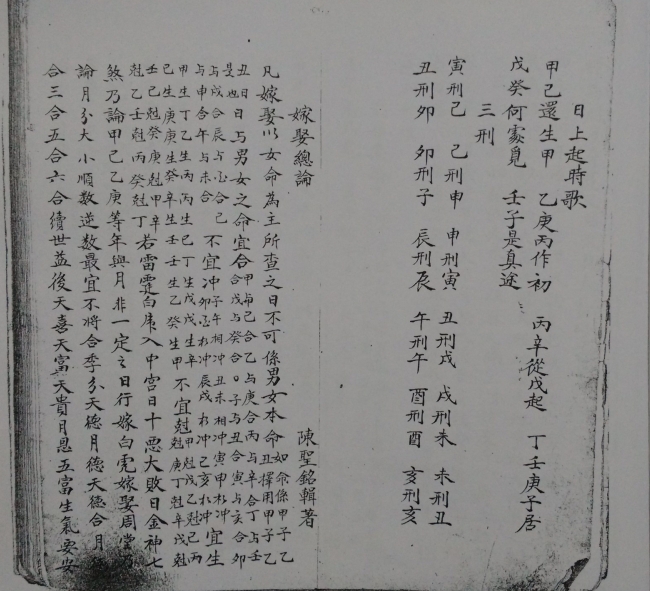 日上起時歌
甲己還生甲 乙庚丙作初 丙辛從戊起 丁壬庚子居
戊癸何處覓 壬子是真途
三刑
寅刑巳 巳刑申 申刑寅 丑刑戌 戌刑未 未刑丑
丑刑卯 卯刑子 辰刑辰 午刑午 酉刑酉 亥刑亥
嫁娶總論 陳聖銘輯著
凡嫁娶以女命為主所查之日不可係男女本命如命係甲子乙丑擇用甲子乙
丑日是也日與男女之命宜合甲與己合乙與庚合丙與辛合丁與壬合戊與癸合○子與丑合寅與亥合卯
與戌合辰與酉合巳與申合午與未合不宜冲子午相冲丑未相冲寅申相冲卯酉相冲辰戌相冲巳亥相冲宜生
甲生丁乙生丙丙生己丁生戊戊生辛己生庚庚生癸辛生壬壬生乙癸生甲不宜尅甲尅戊乙尅己丙尅庚丁尅辛戊尅
壬己尅癸庚尅甲辛尅乙壬尅丙癸尅丁若雷霆白虎入中宮日十惡大敗日金神七
煞乃論甲己乙庚等年與月非一定之日行嫁白虎嫁娶周堂乃
論月分大小順數逆數最宜不將合季分天德月德天德合月
合三合五合六合續世益後天喜天富天貴月恩五富生氣要安